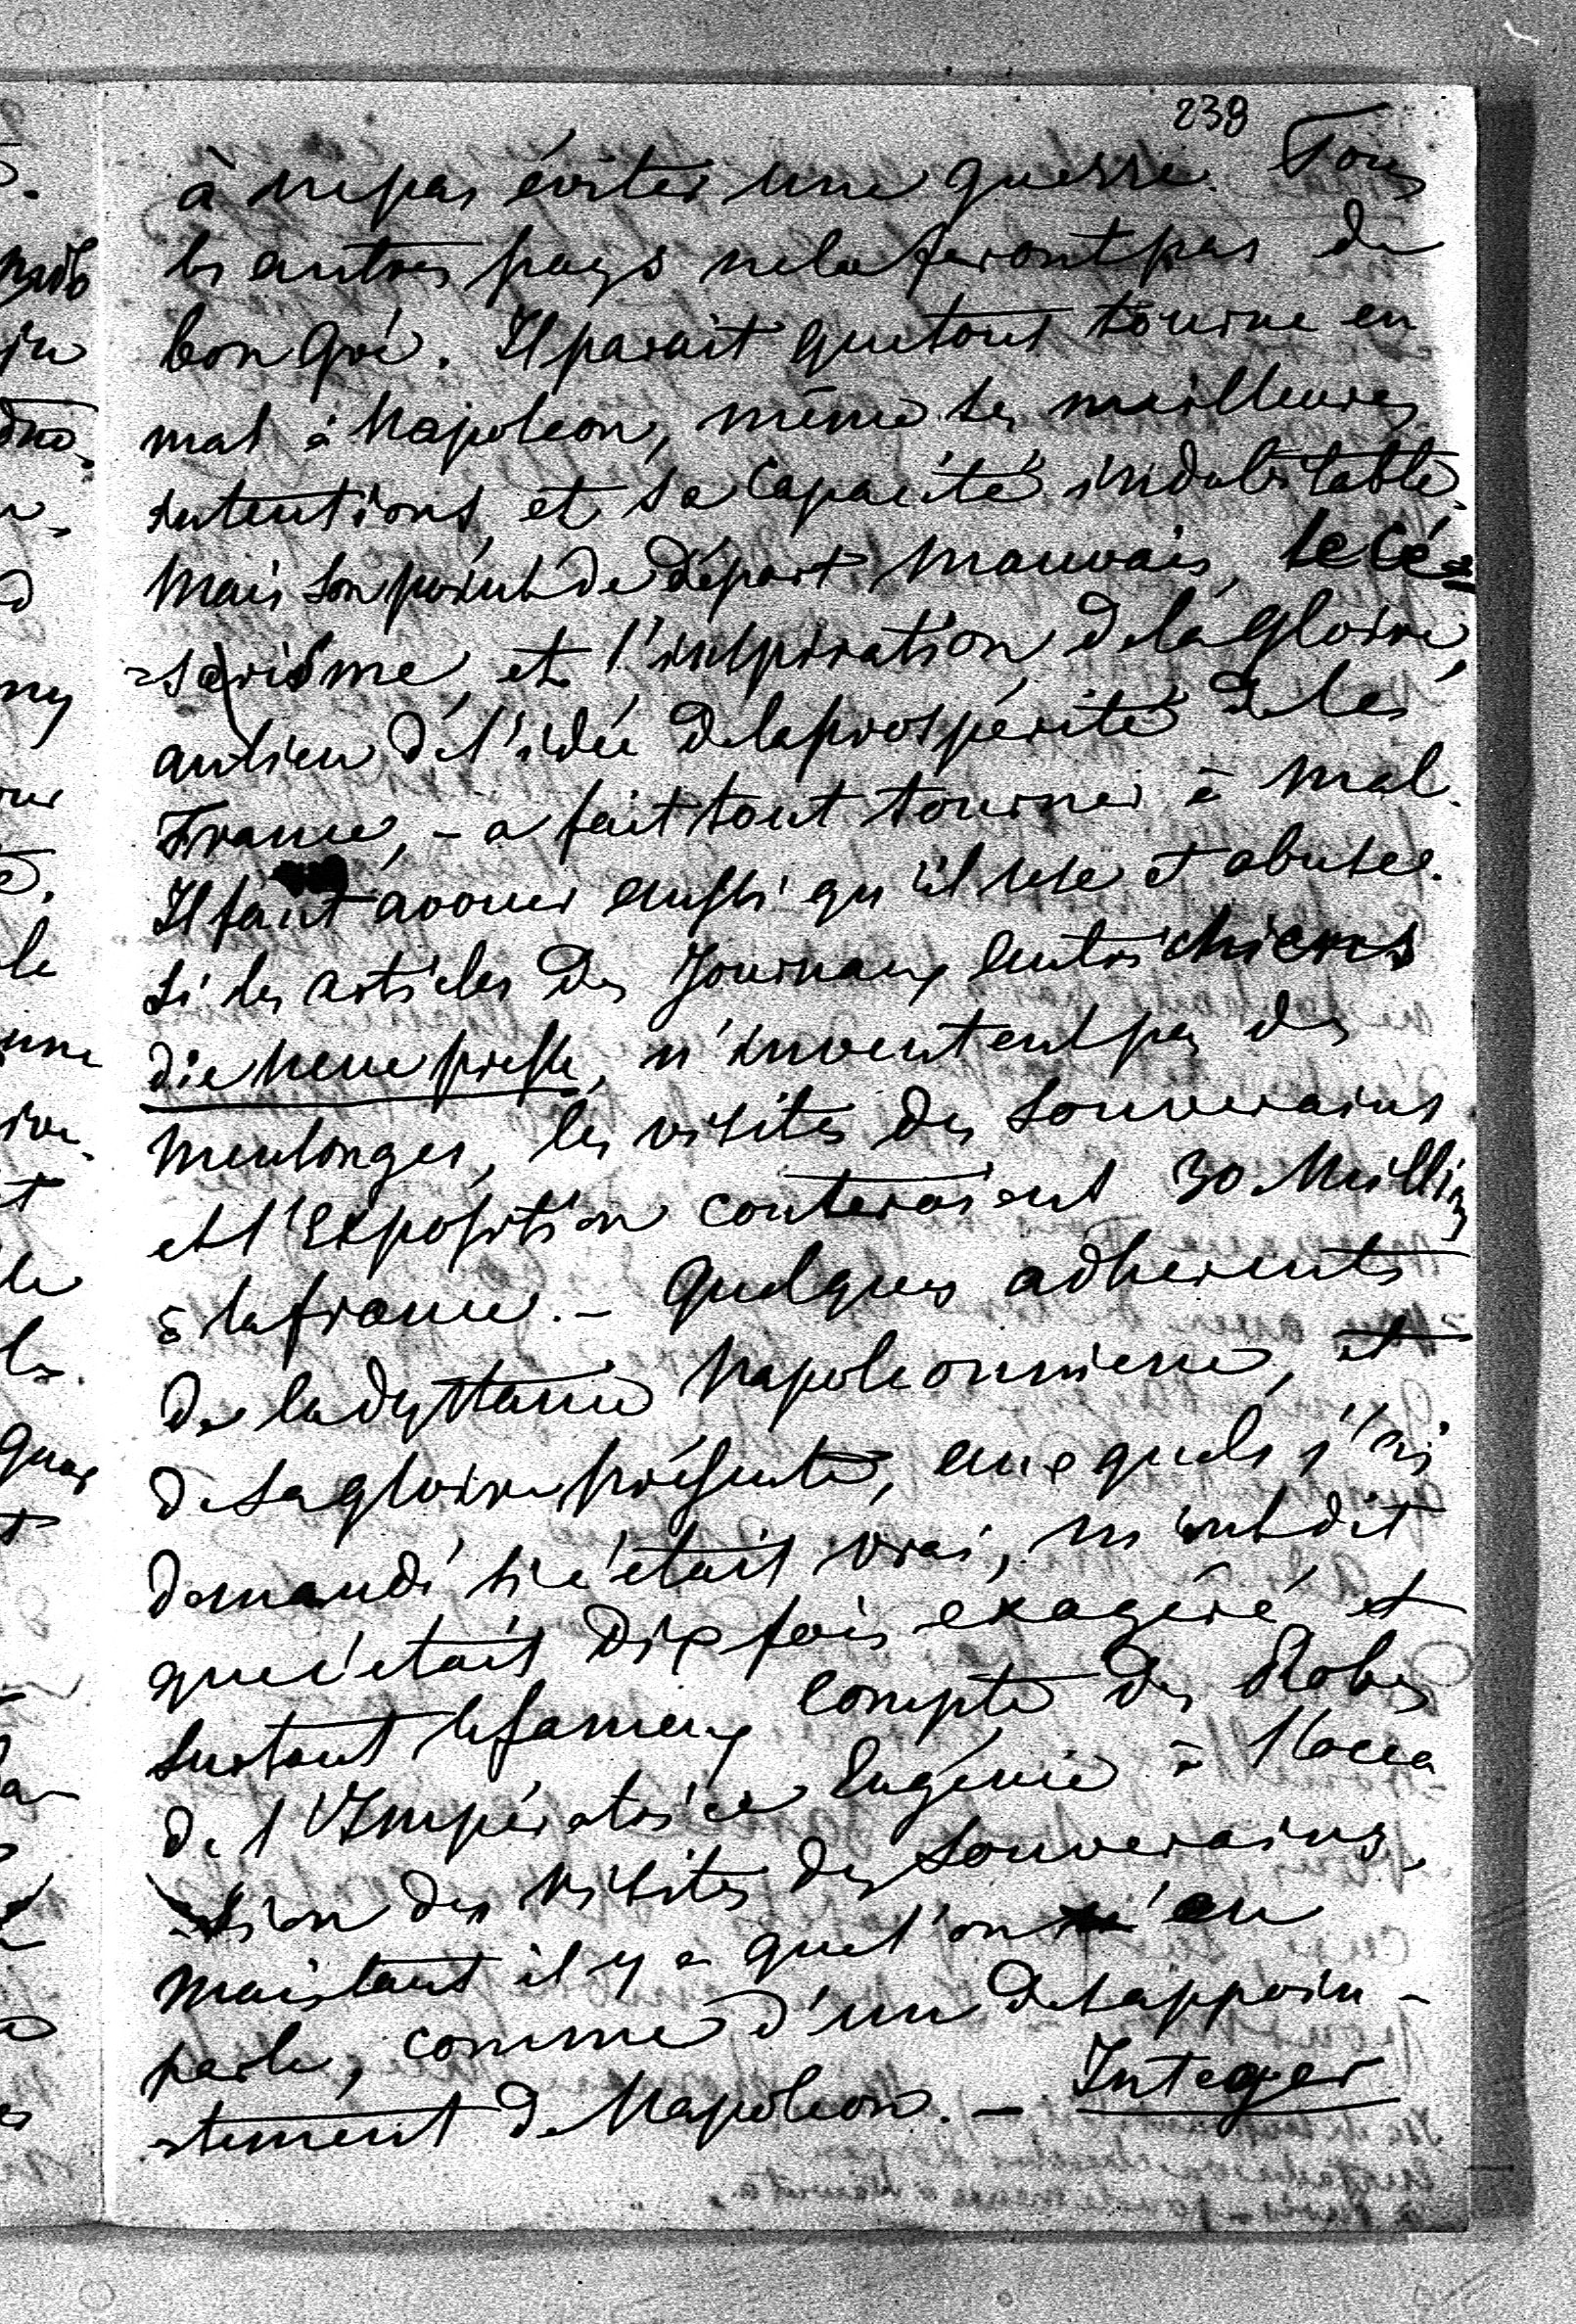 238
à ne pas éviter une guerre. Tous
les autres pays ne la feront pas de
bon gré. Il parait que tout tourne en
mal à Napoléon, même ses meilleures
intentions et sa capacité indubitable.
Mais son point de départ mauvais, le cé=
=sarisme et l'inspiration de la gloire,
au lieu de l'idée de la prospérité de la
France, - a fait tout tourner à mal.
Il faut avouer aussi qu'il use et abuse.
Si les articles des Journaux autrichiens
die neue presse, n'inventent pas des
mensonges, les visites des souverains
et l'Exposition couteraient 30 Millis
à la france. - Quelques adherents
de la dynastie Napoleonniene, et
de sa gloire présente, auxquels j'ai
demandé si c'était vrai, m'ont dit
que c'etait dix fois exagéré et
surtout le fameux compte des Robes
de l'Impératrice Eugénie à l'occa
=sion des visites des souverains,
mais tant il y a que l'on en
parle, comme d'un desappoin-
-tement de Napoleon. - Integer